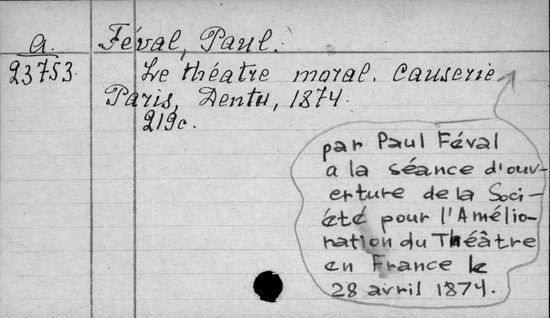 a.
23753.
Féval, Paul.
Le théatre moral. Causerie
Paris, Dentu, 1874.
219c.
par Paul Féval
a la séance d'ouv-
erture de la Soci-
été pour l'Amélio-
ration du Théâtre
en France le
28 avril 1874.